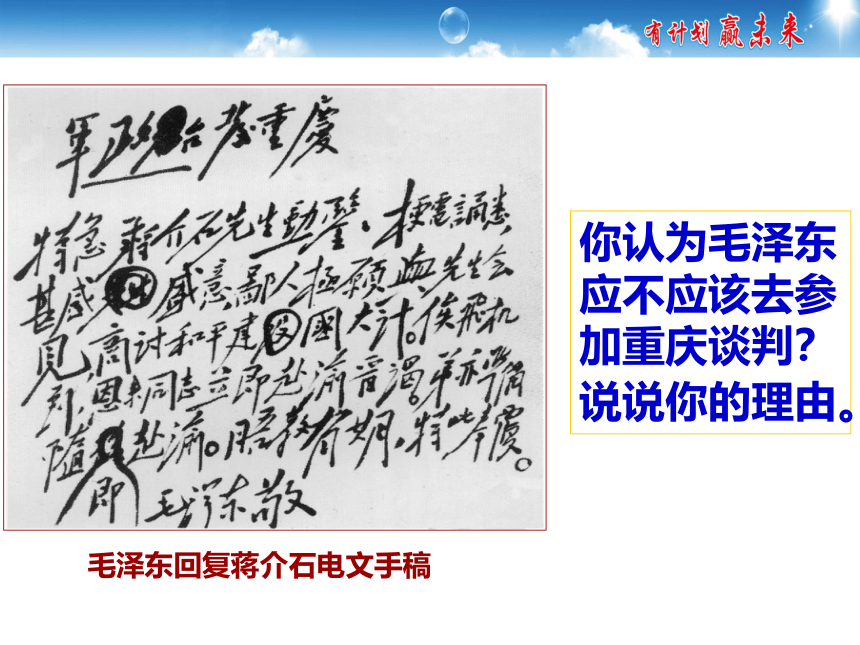 有计划 赢未来
军政治発重慶
特急 蒋介石先生勛鑒、梗電誦悉,
甚感盛意鄙人極願與先生会
見,商討和平建国大计。俟飛机
到,恩来同志立即赴渝晋谒。弟亦準備
隨即赴渝。晤教有期,特此奉覆。
毛泽东敬
你认为毛泽东
应不应该去参
加重庆谈判?
说说你的理由。
毛泽东回复蒋介石电文手稿